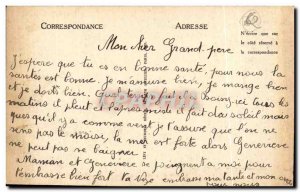 CORRESPONDANCE
ADRESSE
N'écrire que sur
le côté réservé à
la correspondance
Mon cher Grand-père
J'espère que tu es en bonne santé, pour nous la
santés est bonne. Je m'amuse bien, je mange bien
et je dors bien. tous les
matins il pleut et l'après midi il fait du soleil mais
qu'il y a comme vent je t'assure que l'on ne
sens pas le moisi, la mer est forte alors Geneviève
ne peut pas se baigner.
Maman et Geneviève se joignent a moi pour
t'embrasser bien fort